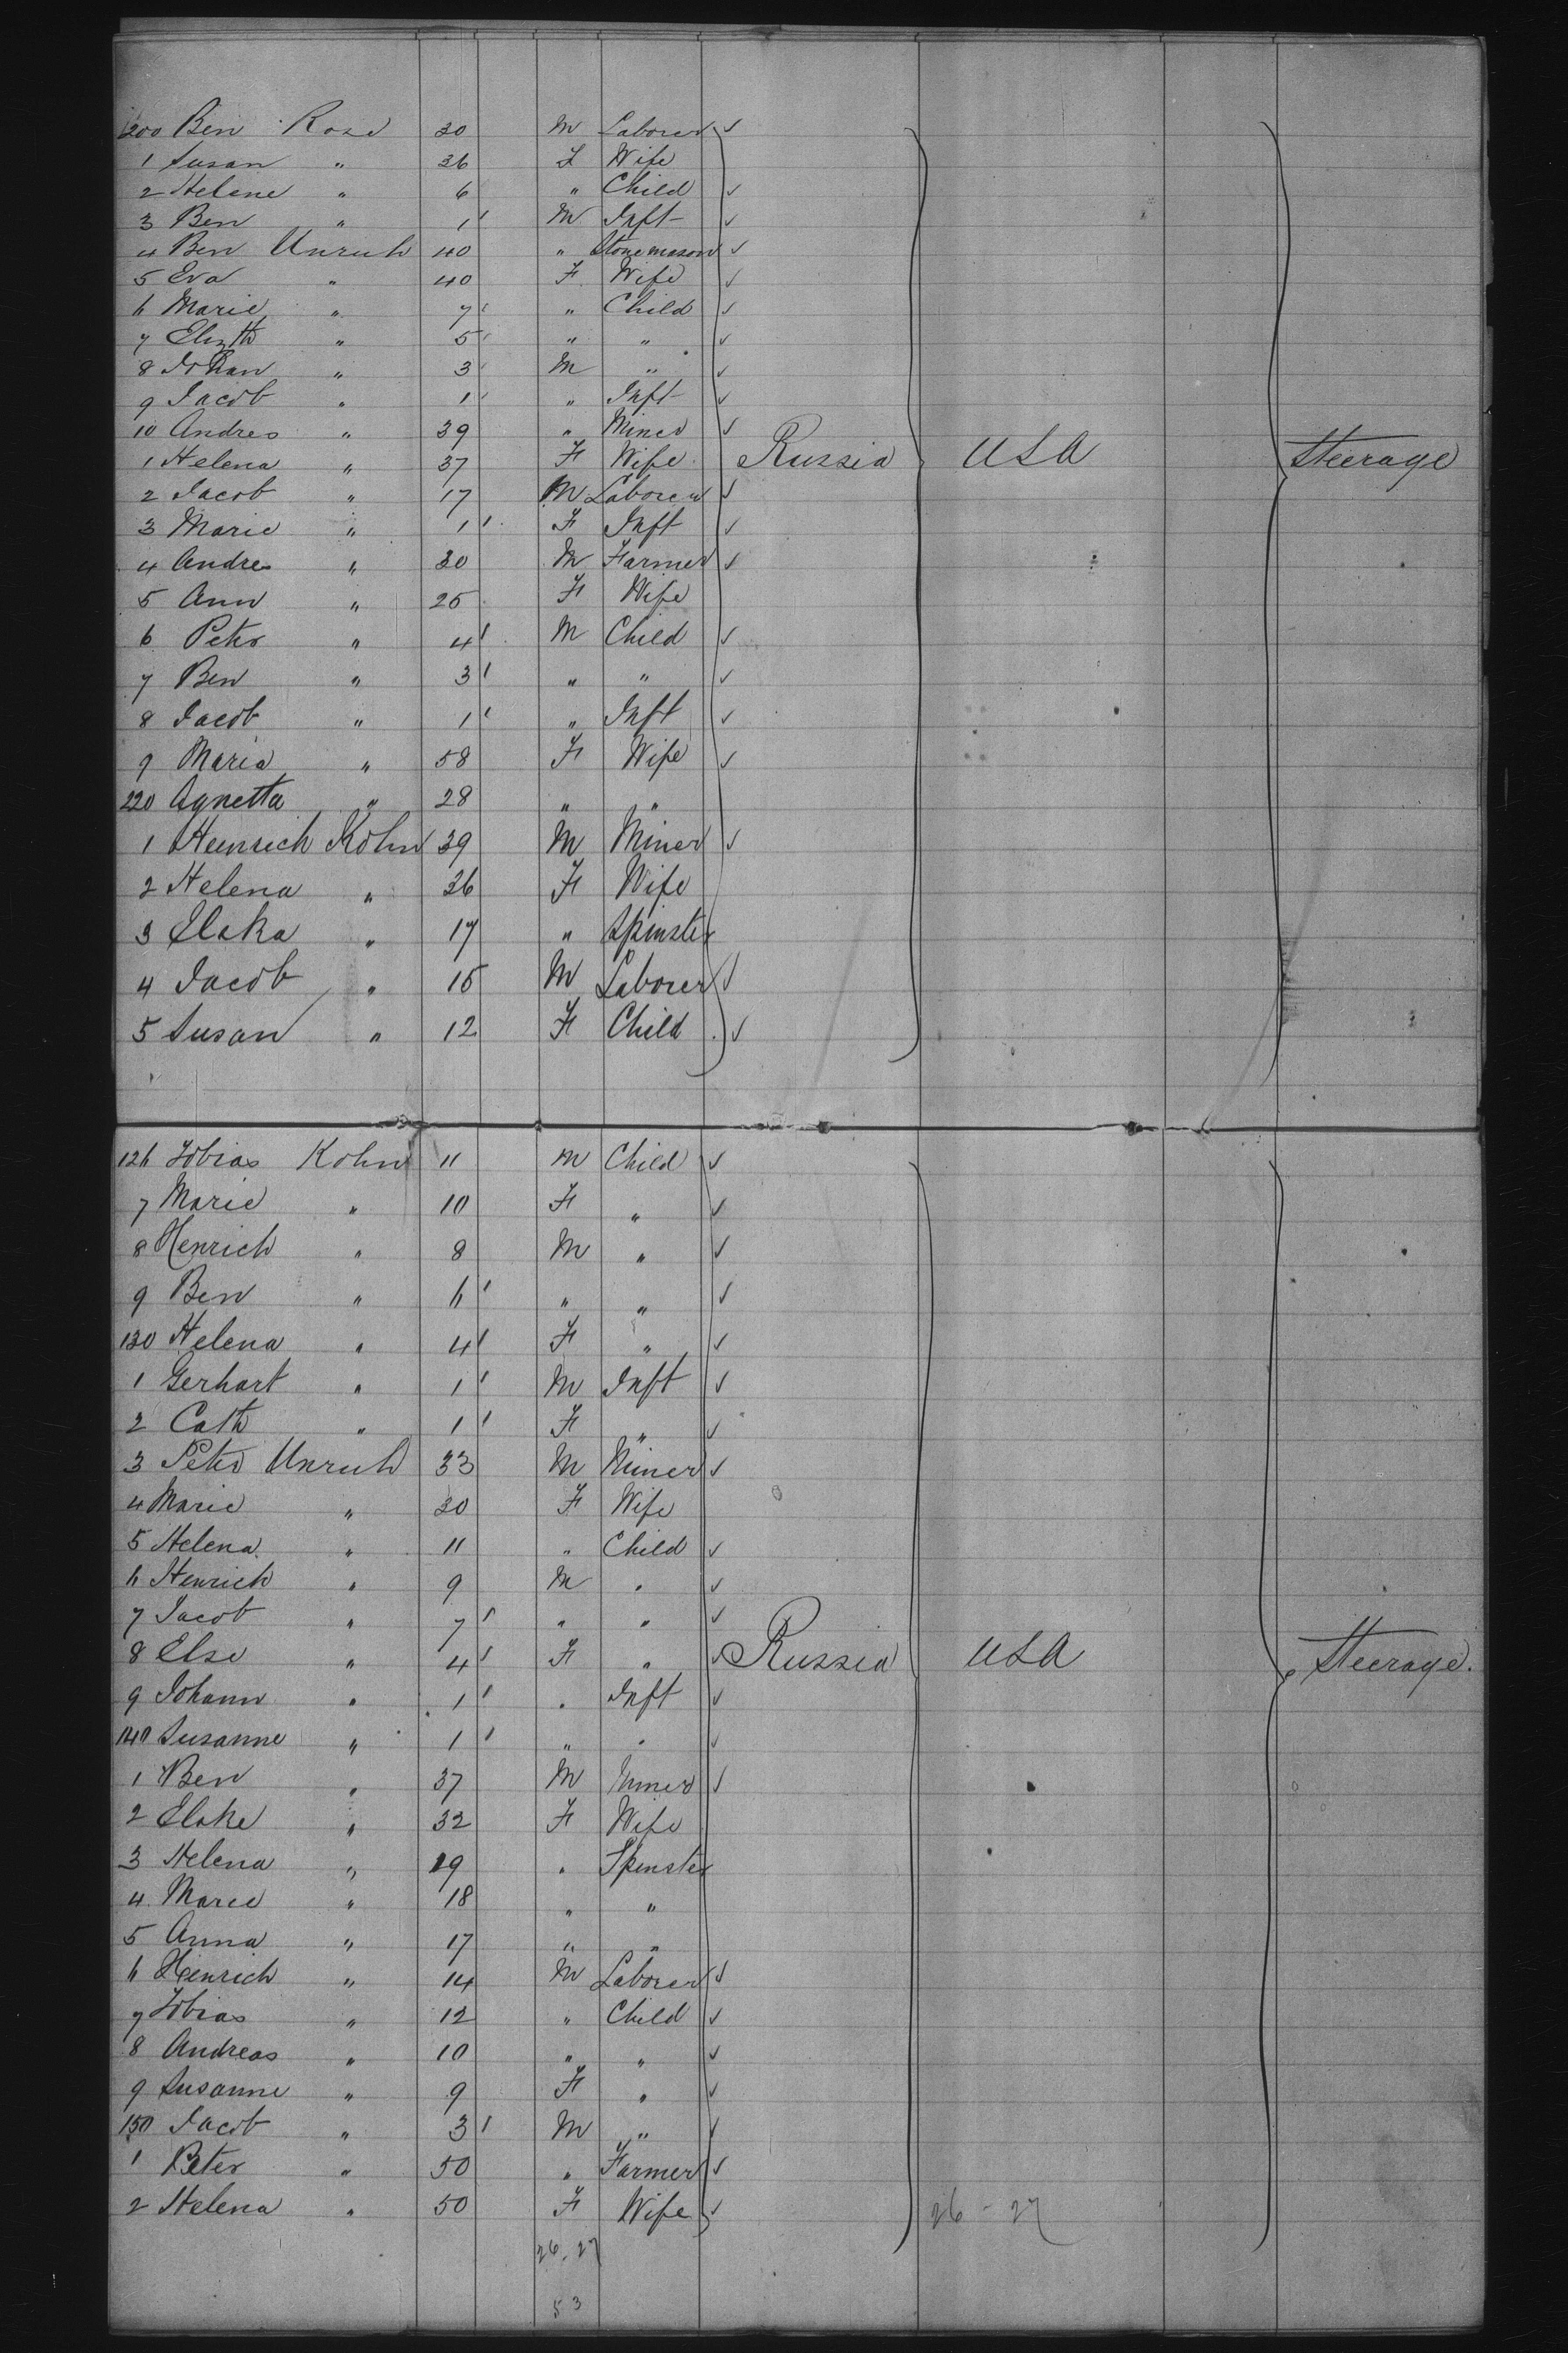 200 Ben Rose 30 M Laborer ✓
1 Susan " 36 F Wife
2 Helene " 6 " Child ✓
3 Ben " 1 ' M Inft ✓
4 Ben Unruh 40 " Stonemason ✓
5 Eva " 40 F Wife ✓
6 Marie " 7 ' " Child ✓
7 Elizth " 5 ' " " ✓
8 Johan " 3 ' M " ✓
9 Jacob " 1 ' " Inft ✓
10 Andres " 39 " Miner ✓
1 Helena " 37 F Wife Russia USA Steerage
2 Jacob " 17 M Laborer ✓
3 Marie " 1 ' F Inft ✓
4 Andres " 30 M Farmer ✓
5 Ann " 25 F Wife
6 Peter " 4 ' M Child ✓
7 Ben " 3 ' " " ✓
8 Jacob " 1 ' " Inft ✓
9 Maria " 58 F Wife ✓
220 Agnetta " 28 " "
1 Heinrich Kohn 39 M Miner ✓
2 Helena " 36 F Wife
3 Elska " 17 " Spinster
4 Jacob " 15 M Laborer ✓
5 Susan " 12 F Child ✓
126 Tobias Kohn 11 M Child ✓
7 Marie " 10 F " ✓
8 Henrich " 8 M " ✓
9 Ben " 6 ' " " ✓
130 Helena " 4 ' F " ✓
1 Gerhart " 1 ' M Inft ✓
2 Cath " 1 ' F " ✓
3 Peter Unruh 33 M Miner ✓
4 Marie " 30 F Wife
5 Helena " 11 " Child ✓
6 Henrich " 9 M " ✓
7 Jacob " 7 ' " " ✓
8 Else " 4 ' F " ✓ Russia USA Steerage.
9 Johann " 1 ' " Inft ✓
140 Susanne " 1 ' " " ✓
1 Ben " 37 M Miner ✓
2 Elske " 32 F Wife
3 Helena " 19 " Spinster
4 Marie " 18 " "
5 Anna " 17 " "
6 Henrich " 14 M Laborer ✓
7 Tobias " 12 " Child ✓
8 Andreas " 10 " " ✓
9 Susanne " 9 F " ✓
150 Jacob " 3 ' M " ✓
1 Peter " 50 " Farmer ✓
2 Helena " 50 F Wife ✓ 26 - 27
26. 27
53